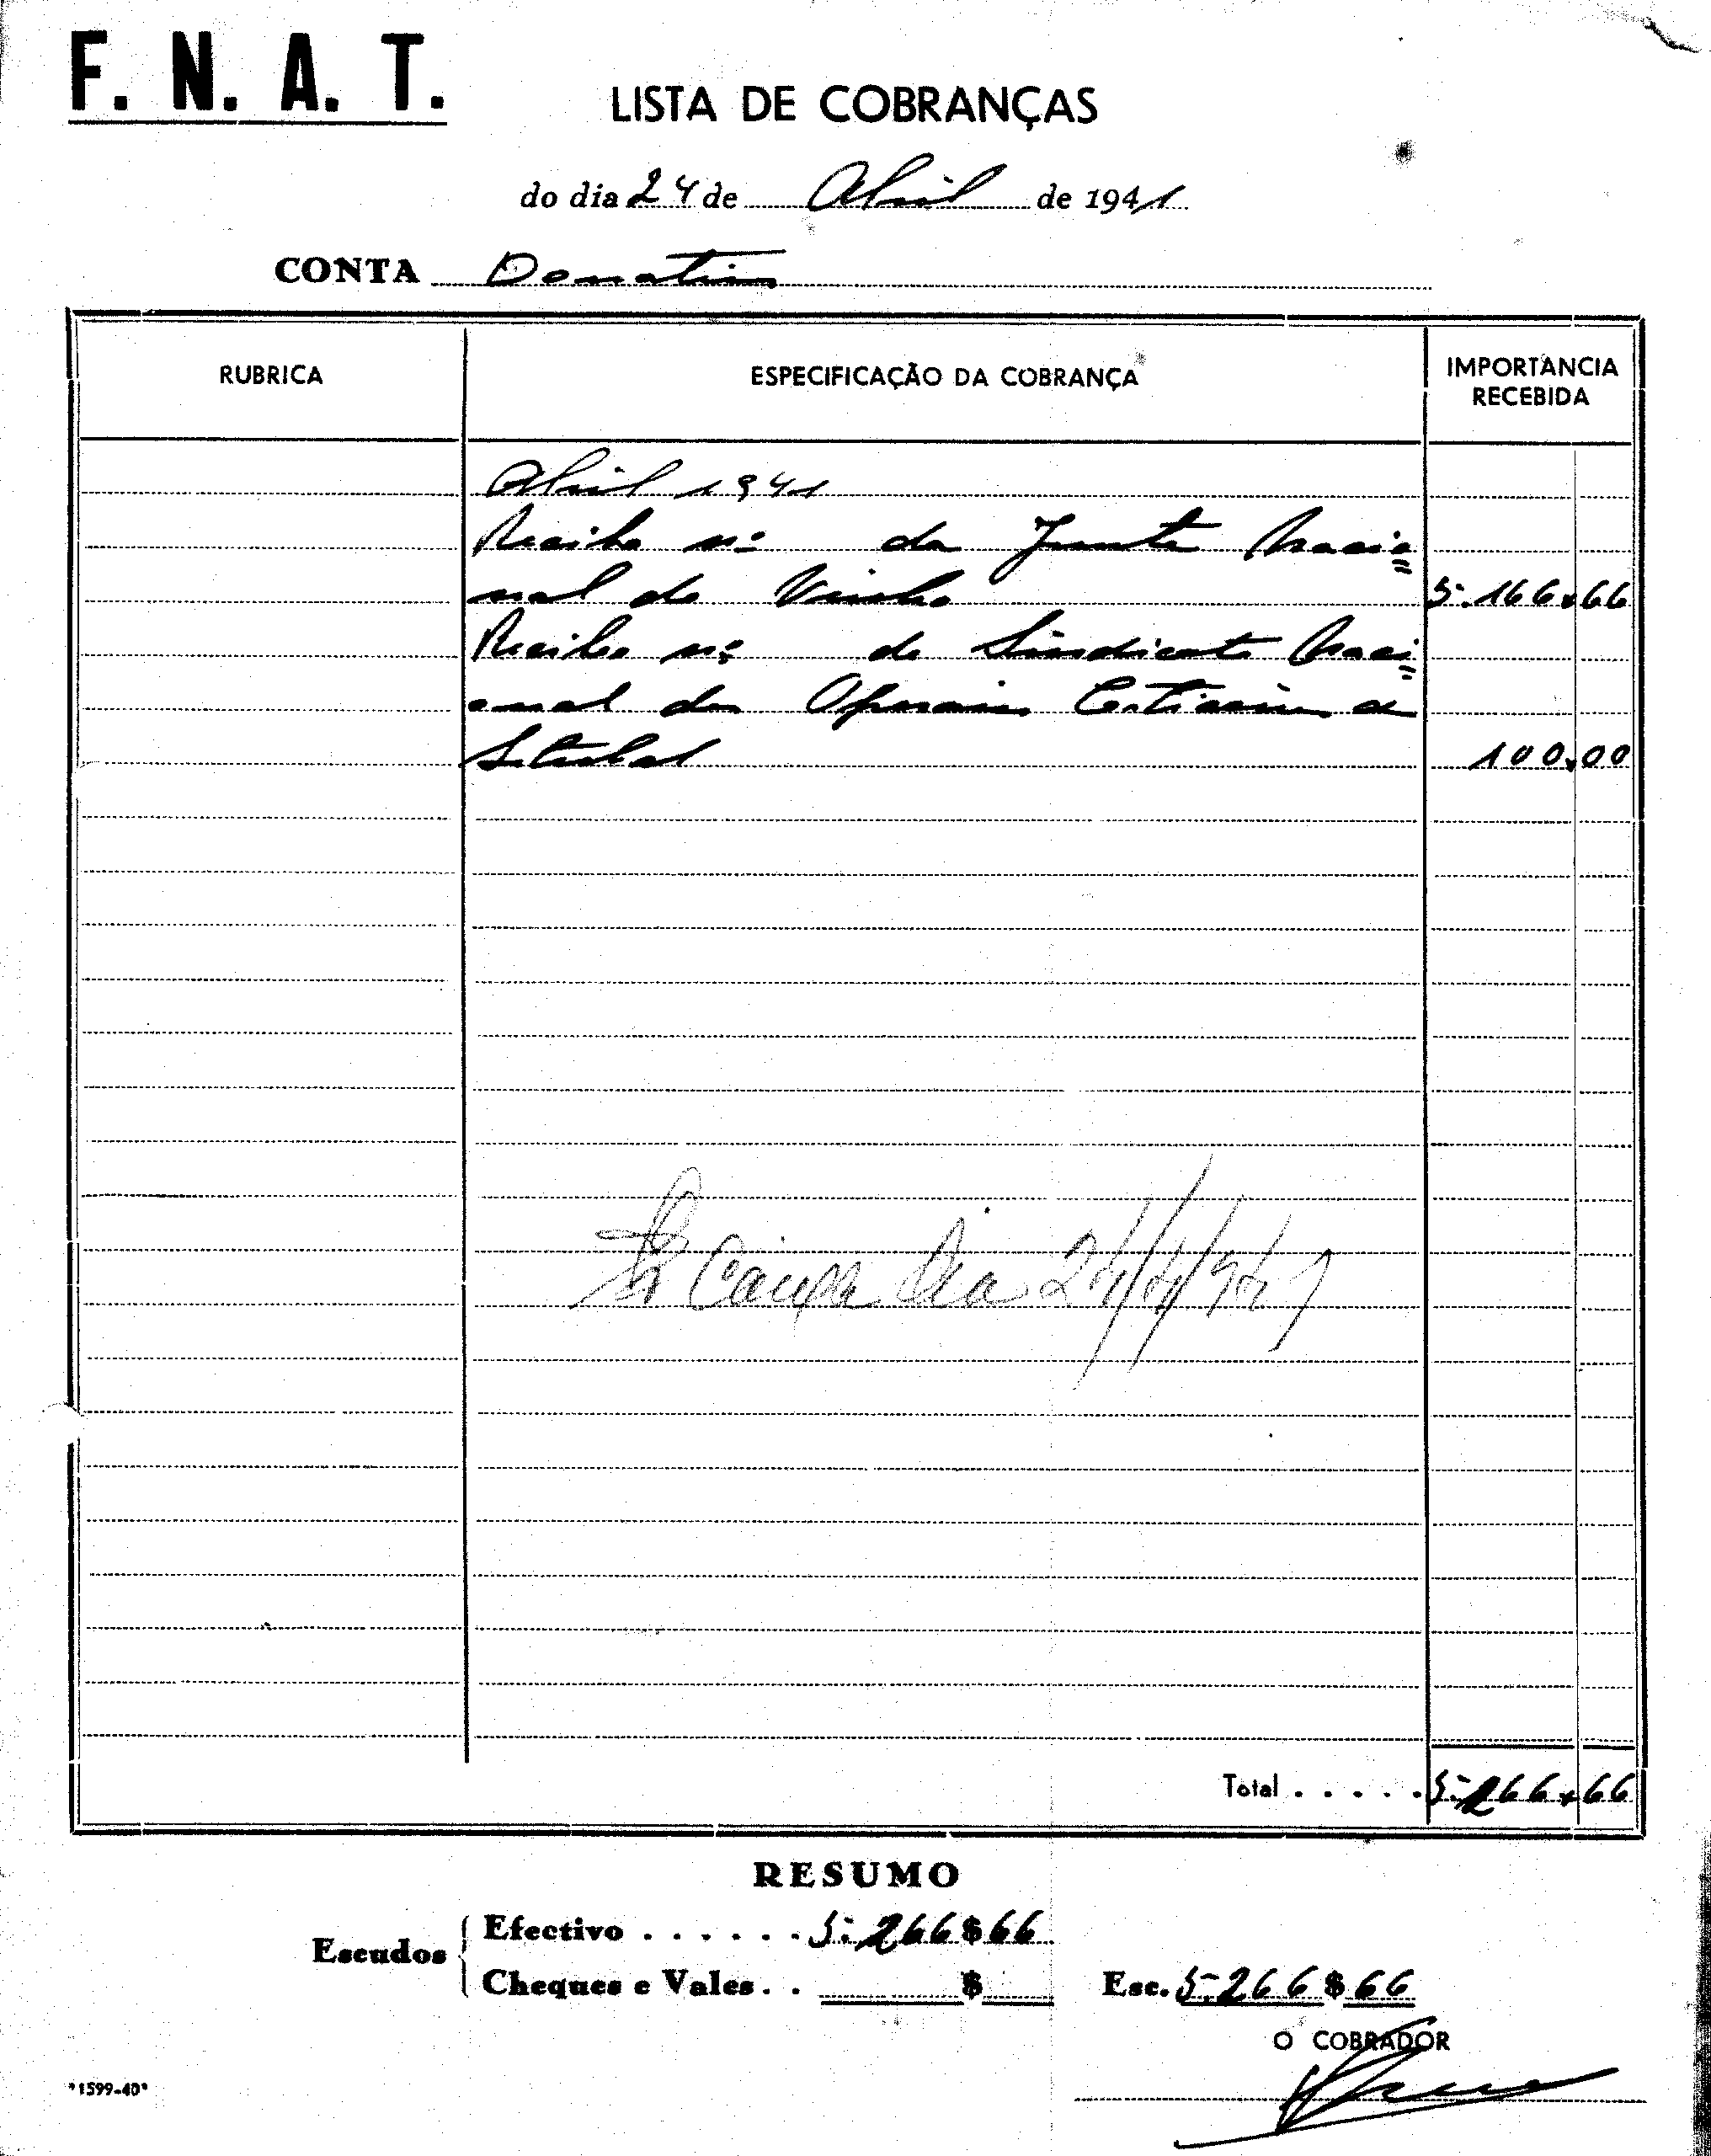 F. N. A. T.
LISTA DE COBRANÇAS
do dia 24 de Abril de 1941
CONTA Donativos
RUBRICA ESPECIFICAÇÃO DA COBRANÇA IMPORTANCIA RECEBIDA
Abril 1941
Recibo nº da Junta Nacio
nal do Vinho 5.166$66
Recibo nº do Sindicato Naci
onal dos Operarios Corticeiros de
Setubal 100$00
Caixa Dia 24/4/941
Total . . . . . 5.266$66
RESUMO
Escudos
Efectivo . . . . . . 5.266$66
Cheques e Vales . . $
Esc. 5.266$66
O COBRADOR
"1599-40"